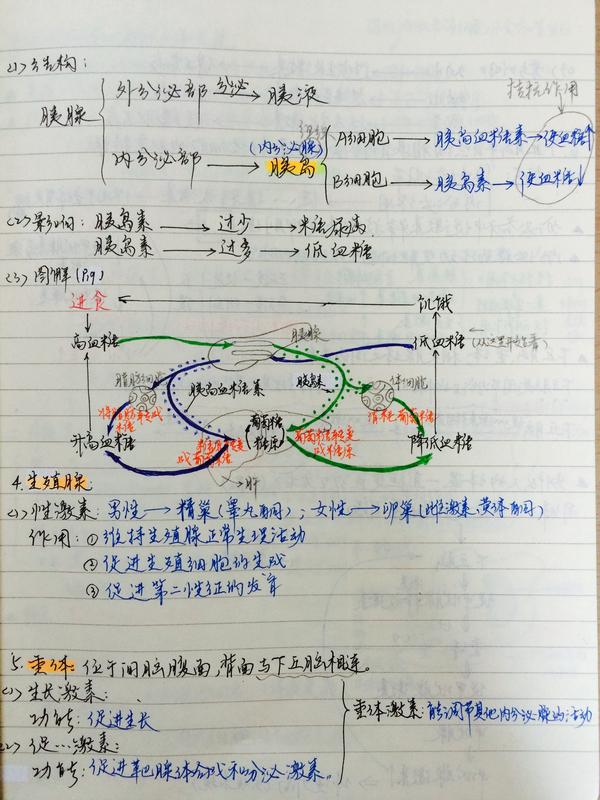 (1)结构：
胰腺
外分泌部 分泌 胰液
内分泌部
(内分泌腺)
胰岛
A细胞 胰高血糖素 使血糖↑
B细胞 胰岛素 使血糖↓
拮抗作用
(2)影响：胰岛素 过少 糖尿病
胰岛素 过多 低血糖
(3)图解(P19)
进食 饥饿
高血糖 胰腺 低血糖 (从这里开始看)
脂肪细胞 胰高血糖素 胰岛素 体细胞
将脂肪变成糖
葡萄糖
糖原
消耗葡萄糖
升高血糖 降低血糖
肝
4.生殖腺：
(1)性激素：男性→精巢(睾丸酮)；女性→卵巢(雌激素、黄体酮)
作用：①维持生殖腺正常生理活动
②促进生殖细胞的生成
③促进第二性征的发育
5.垂体：位于间脑腹面，背面与下丘脑相连。
(1)生长激素：
功能：促进生长
垂体激素：能调节其他内分泌腺的活动
(2)促…激素：
功能：促进靶腺体合成和分泌激素。